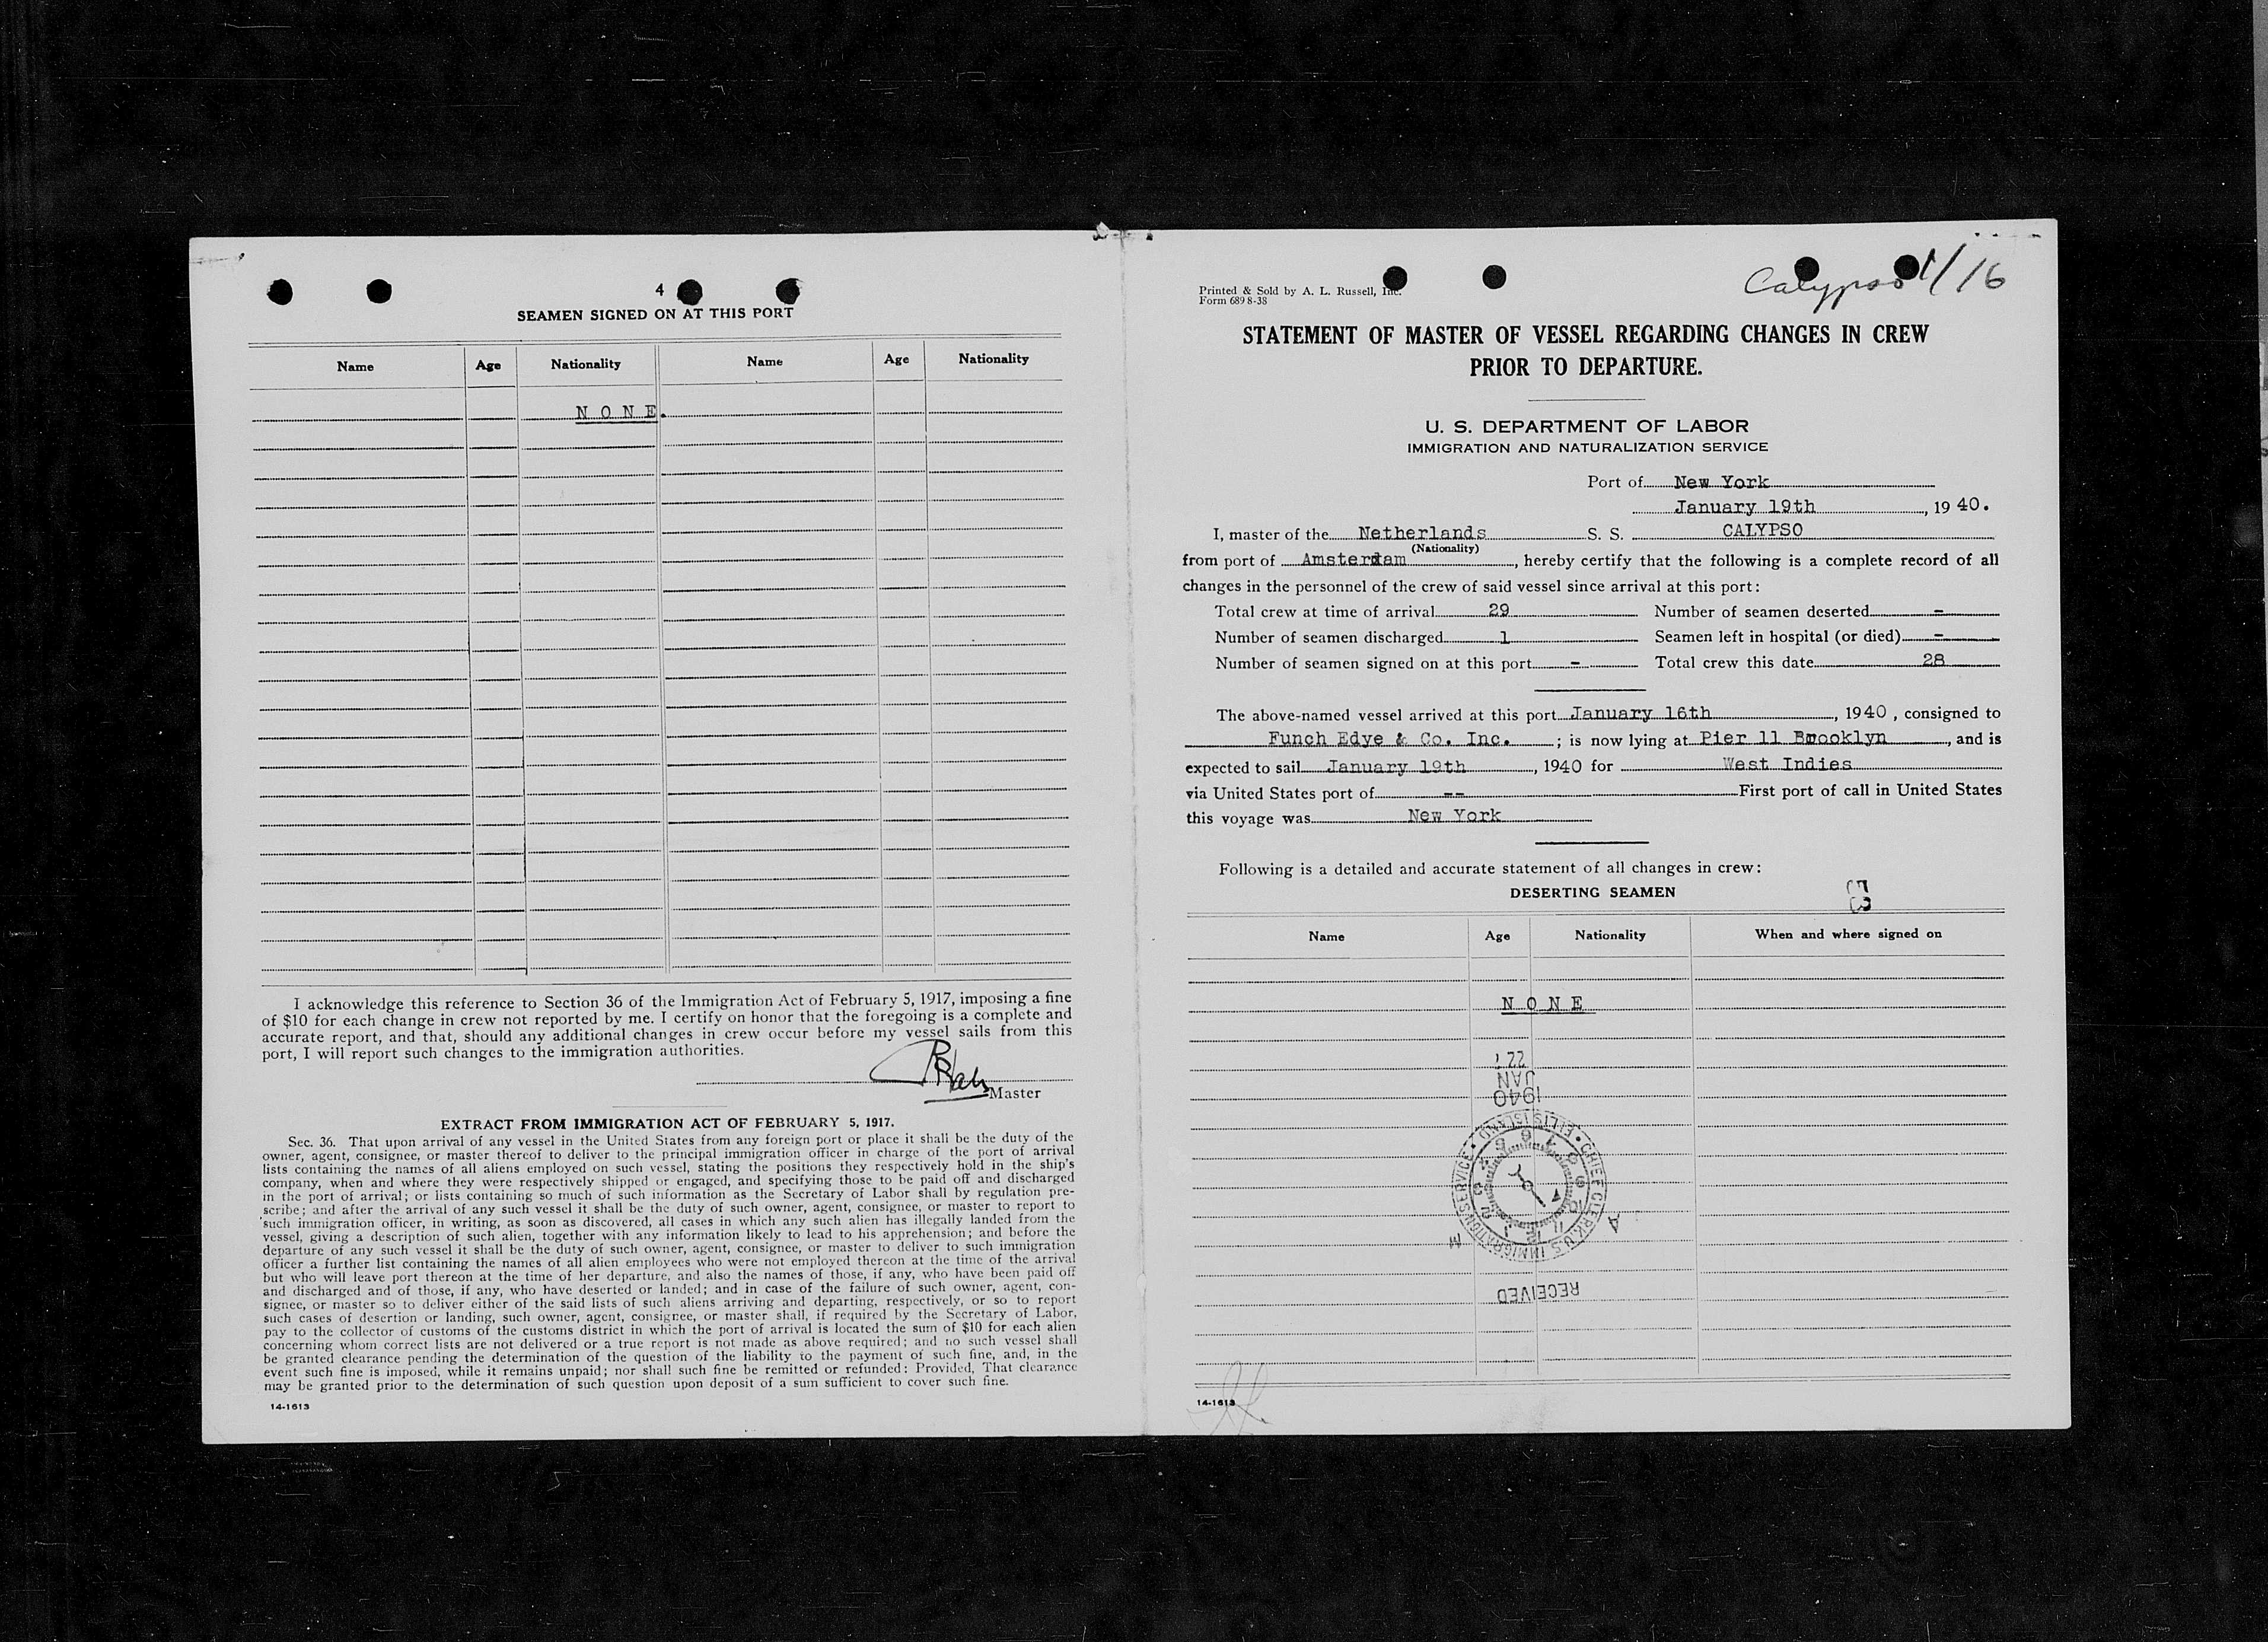 4
SEAMEN SIGNED ON AT THIS PORT
Name Age Nationality Name Age Nationality
N O N E.
I acknowledge this reference to Section 36 of the Immigration Act of February 5, 1917, imposing a fine
of $10 for each change in crew not reported by me. I certify on honor that the foregoing is a complete and
accurate report, and that, should any additional changes in crew occur before my vessel sails from this
port, I will report such changes to the immigration authorities.
Master
EXTRACT FROM IMMIGRATION ACT OF FEBRUARY 5, 1917.
Sec. 36. That upon arrival of any vessel in the United States from any foreign port or place it shall be the duty of the
owner, agent, consignee, or master thereof to deliver to the principal immigration officer in charge of the port of arrival
lists containing the names of all aliens employed on such vessel, stating the positions they respectively hold in the ship's
company, when and where they were respectively shipped or engaged, and specifying those to be paid off and discharged
in the port of arrival; or lists containing so much of such information as the Secretary of Labor shall by regulation pre-
scribe; and after the arrival of any such vessel it shall be the duty of such owner, agent, consignee, or master to report to
such immigration officer, in writing, as soon as discovered, all cases in which any such alien has illegally landed from the
vessel, giving a description of such alien, together with any information likely to lead to his apprehension; and before the
departure of any such vessel it shall be the duty of such owner, agent, consignee, or master to deliver to such immigration
officer a further list containing the names of all alien employees who were not employed thereon at the time of the arrival
but who will leave port thereon at the time of her departure, and also the names of those, if any, who have been paid off
and discharged and of those, if any, who have deserted or landed; and in case of the failure of such owner, agent, con-
signee, or master so to deliver either of the said lists of such aliens arriving and departing, respectively, or so to report
such cases of desertion or landing, such owner, agent, consignee, or master shall, if required by the Secretary of Labor,
pay to the collector of customs of the customs district in which the port of arrival is located the sum of $10 for each alien
concerning whom correct lists are not delivered or a true report is not made as above required; and no such vessel shall
be granted clearance pending the determination of the question of the liability to the payment of such fine, and, in the
event such fine is imposed, while it remains unpaid; nor shall such fine be remitted or refunded: Provided, That clearance
may be granted prior to the determination of such question upon deposit of a sum sufficient to cover such fine.
14-1613
Calypso 1/16
Printed & Sold by A. L. Russell, Inc.
Form 689 8-38
STATEMENT OF MASTER OF VESSEL REGARDING CHANGES IN CREW
PRIOR TO DEPARTURE.
U. S. DEPARTMENT OF LABOR
IMMIGRATION AND NATURALIZATION SERVICE
Port of New York
January 19th, 1940.
I, master of the Netherlands S. S. CALYPSO
(Nationality)
from port of Amsterdam, hereby certify that the following is a complete record of all
changes in the personnel of the crew of said vessel since arrival at this port:
Total crew at time of arrival 29 Number of seamen deserted -
Number of seamen discharged 1 Seamen left in hospital (or died) -
Number of seamen signed on at this port - Total crew this date 28
The above-named vessel arrived at this port January 16th, 1940, consigned to
Funch Edye & Co. Inc.; is now lying at Pier 11 Brooklyn, and is
expected to sail January 19th, 1940 for West Indies
via United States port of -- First port of call in United States
this voyage was New York
Following is a detailed and accurate statement of all changes in crew:
DESERTING SEAMEN
Name Age Nationality When and where signed on
N O N E
RECEIVED
CHIEF CLERK U.S. IMMIGRATION SERVICE • ELLIS ISLAND •
1940
JAN
22
14-1613